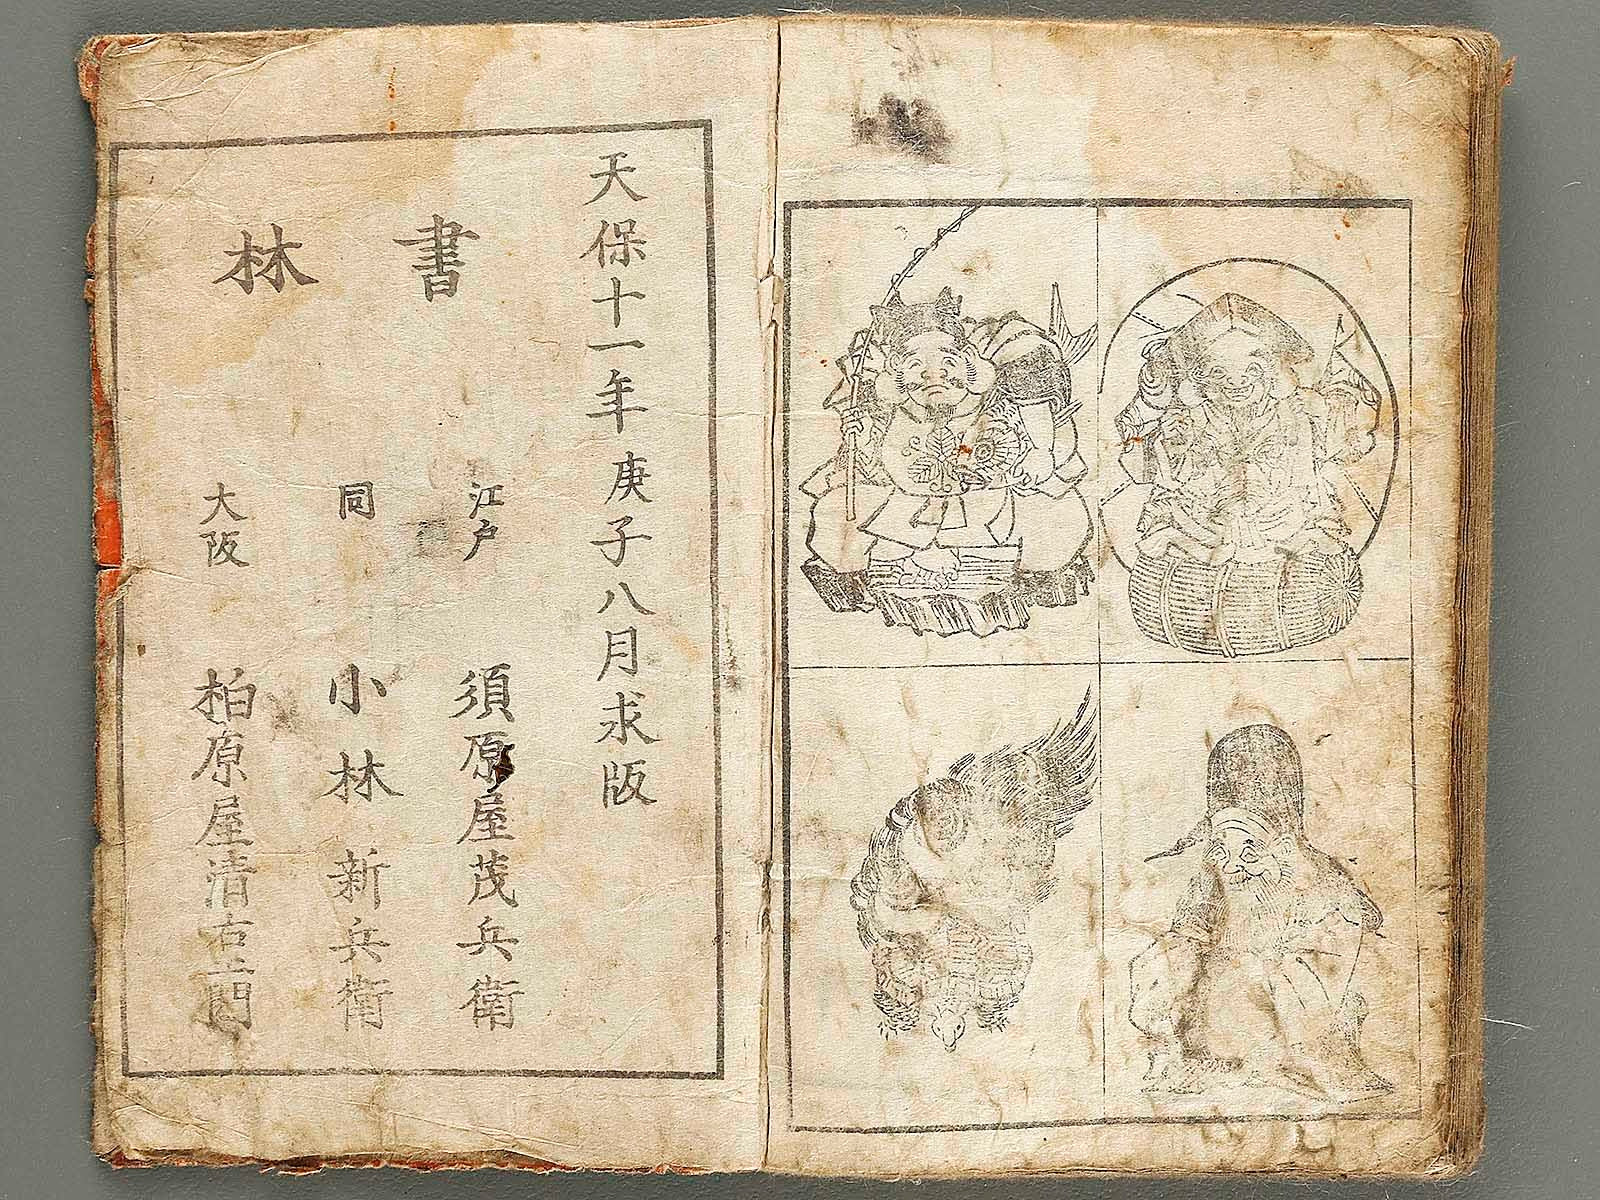 天保十一年庚子八月求版
書林
江戸 須原屋茂兵衛
同 小林新兵衛
大阪 柏原屋清右衛門